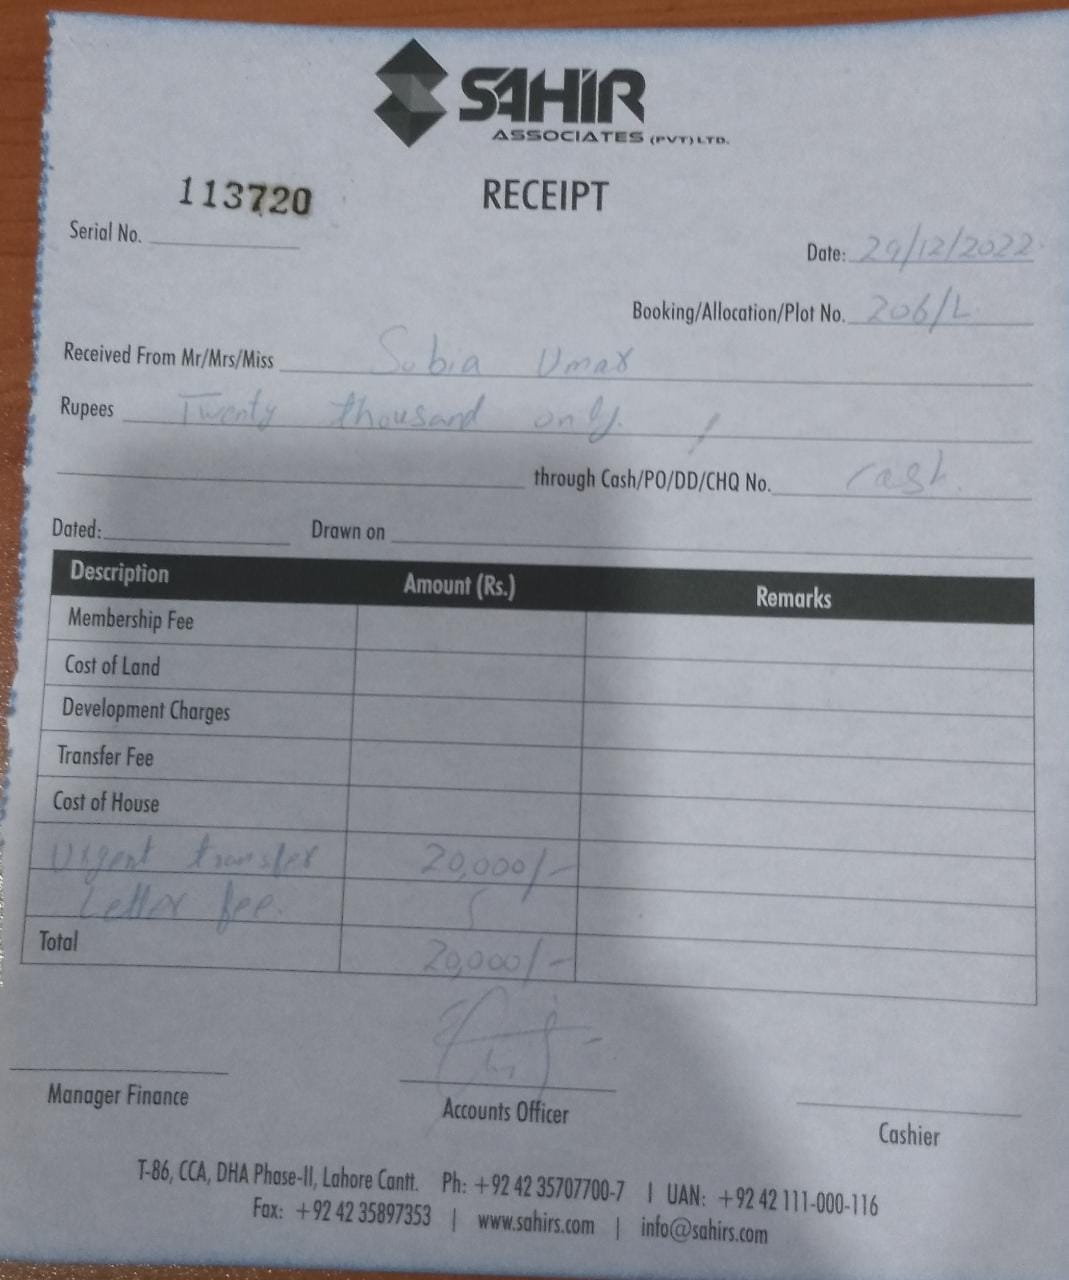 SAHIR
ASSOCIATES (PVT) LTD.
113720
RECEIPT
Serial No.
Date: 29/12/2022
Booking/Allocation/Plot No. 206/L
Received From Mr/Mrs/Miss Sobia Umar
Rupees Twenty thousand only.
through Cash/PO/DD/CHQ No. Cash.
Dated: Drawn on
Description Amount (Rs.) Remarks
Membership Fee
Cost of Land
Development Charges
Transfer Fee
Cost of House
Urgent transfer 20,000/-
Letter fee.
Total 20,000/-
Manager Finance Accounts Officer Cashier
T-86, CCA, DHA Phase-II, Lahore Cantt. Ph: +92 42 35707700-7 | UAN: +92 42 111-000-116
Fax: +92 42 35897353 | www.sahirs.com | info@sahirs.com